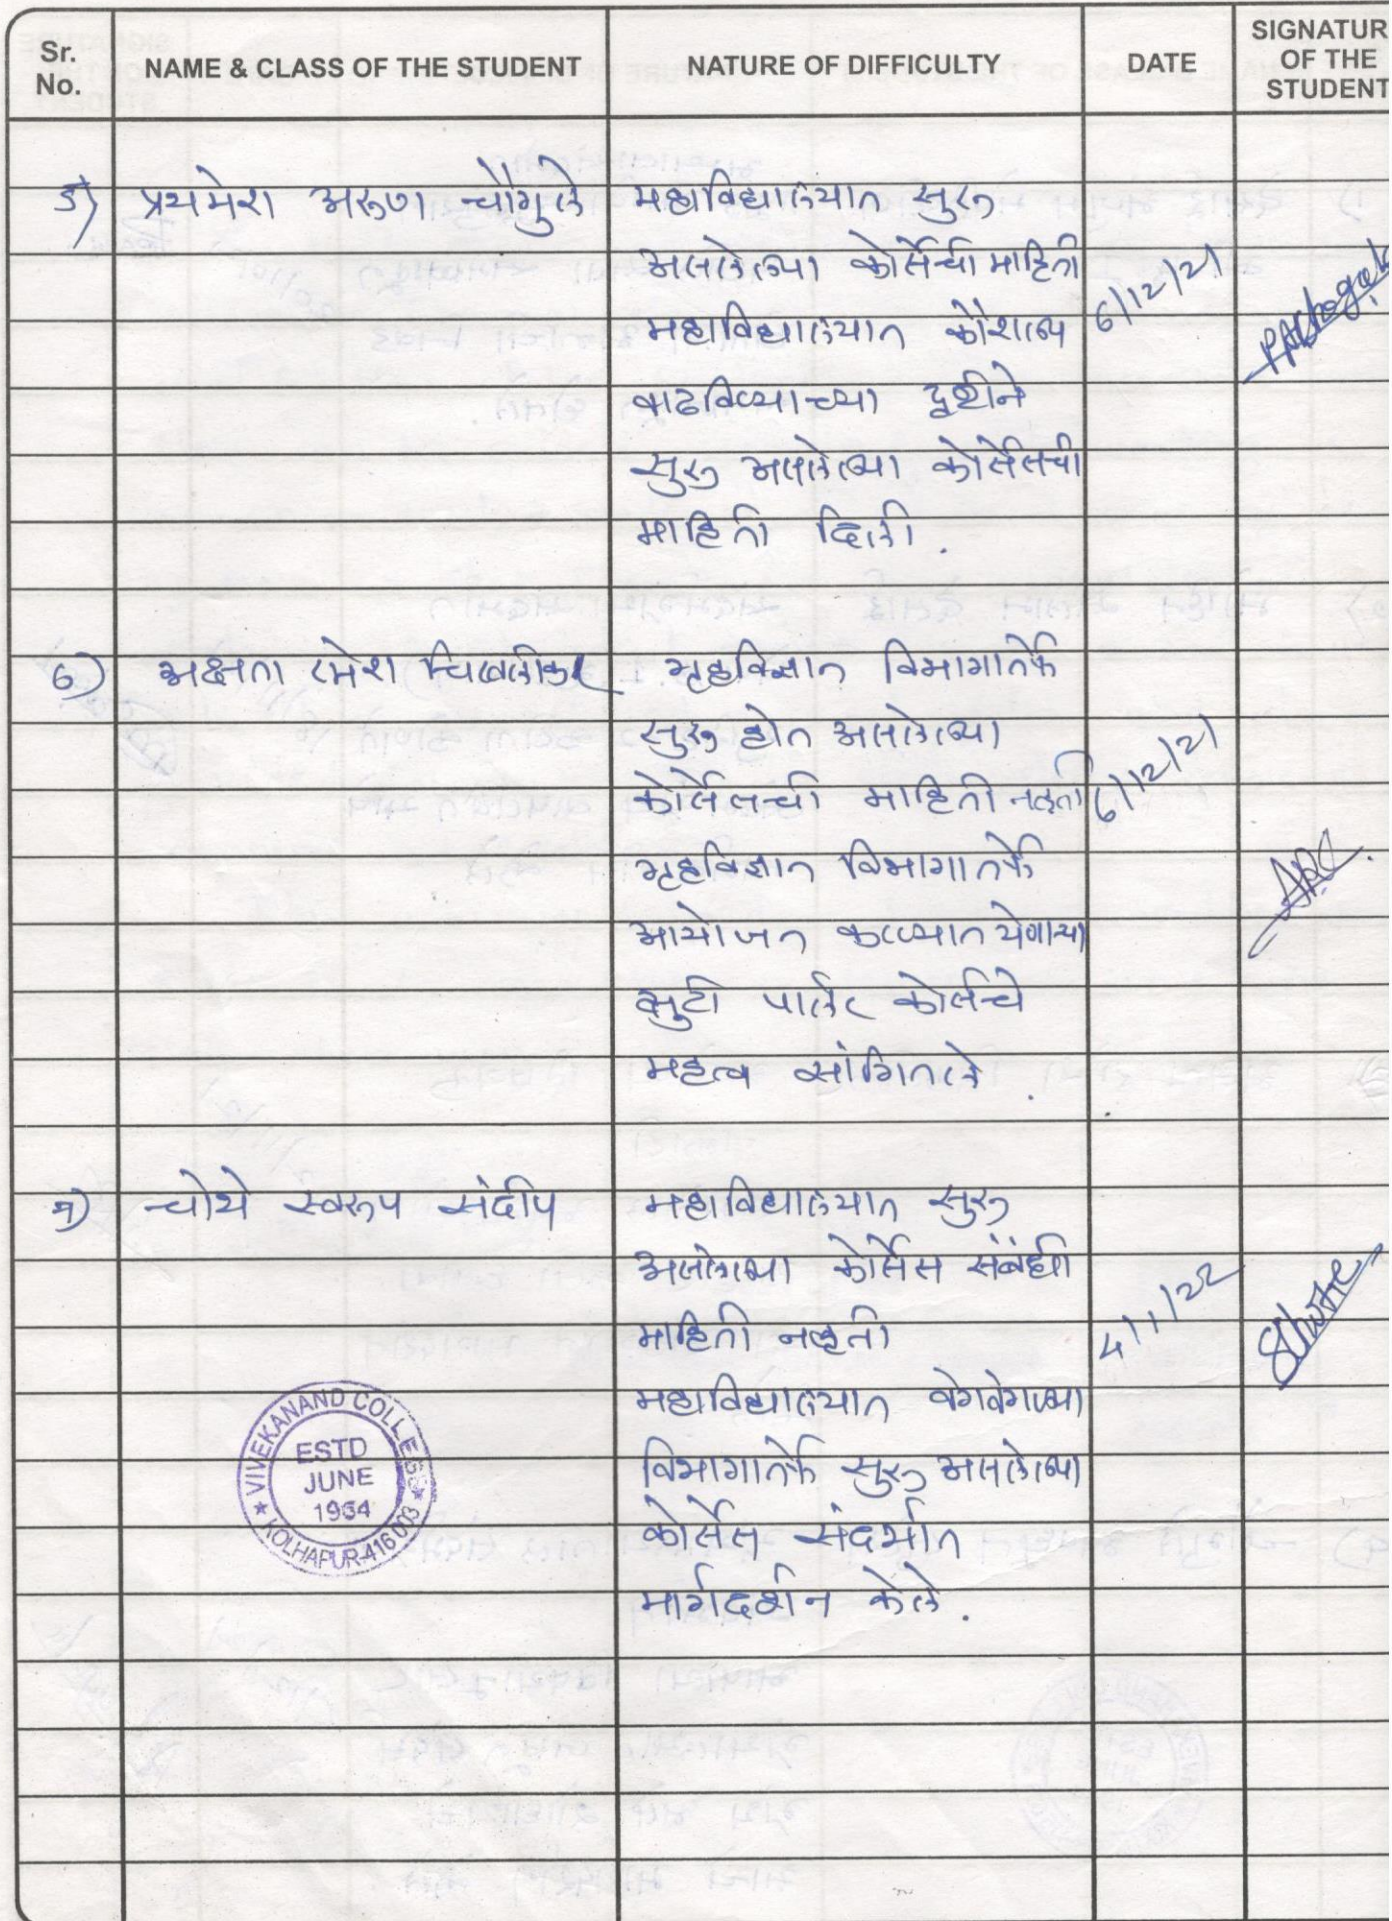 Sr. No.
NAME & CLASS OF THE STUDENT
NATURE OF DIFFICULTY
DATE
SIGNATUR
OF THE
STUDENT
5) प्रथमेश अरुण चौगुले महाविद्यालयात सुरु
असलेल्या कोर्सेची माहिती
महाविद्यालयात कौशल्य 6/12/21
वाढविण्याच्या दृष्टीने
सुरु असलेल्या कोर्सेसची
माहिती दिली.
6) अक्षता रमेश चिखलीकर गृहविज्ञान विभागातर्फे
सुरु होत असलेल्या
कोर्सेसची माहिती नव्हती 6/12/21
गृहविज्ञान विभागातर्फे
आयोजन करण्यात येणाऱ्या
ब्युटी पार्लर कोर्सचे
महत्व सांगितले.
७) चोथे स्वरूप संदीप महाविद्यालयात सुरु
असलेल्या कोर्सेस संबंधी
माहिती नव्हती 4/1/22
महाविद्यालयात वेगवेगळ्या
विभागातर्फे सुरु असलेल्या
कोर्सेस संदर्भात
मार्गदर्शन केले.
VIVEKANAND COLLEGE
ESTD
JUNE
1964
KOLHAPUR-416003